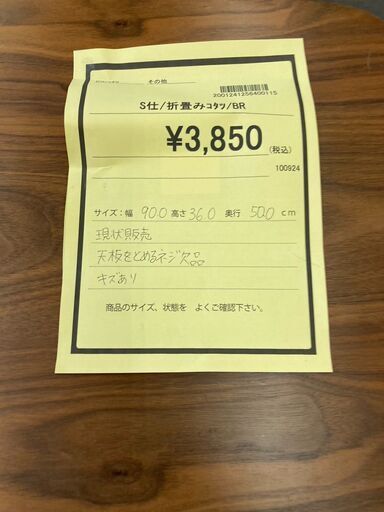 その他
2001241256400115
S仕/折畳みコタツ/BR
¥3,850(税込)
100924
サイズ:幅 90.0 高さ 36.0 奥行 50.0 cm
現状販売
天板をとめるネジ欠品
キズあり
商品のサイズ、状態を よくご確認下さい。